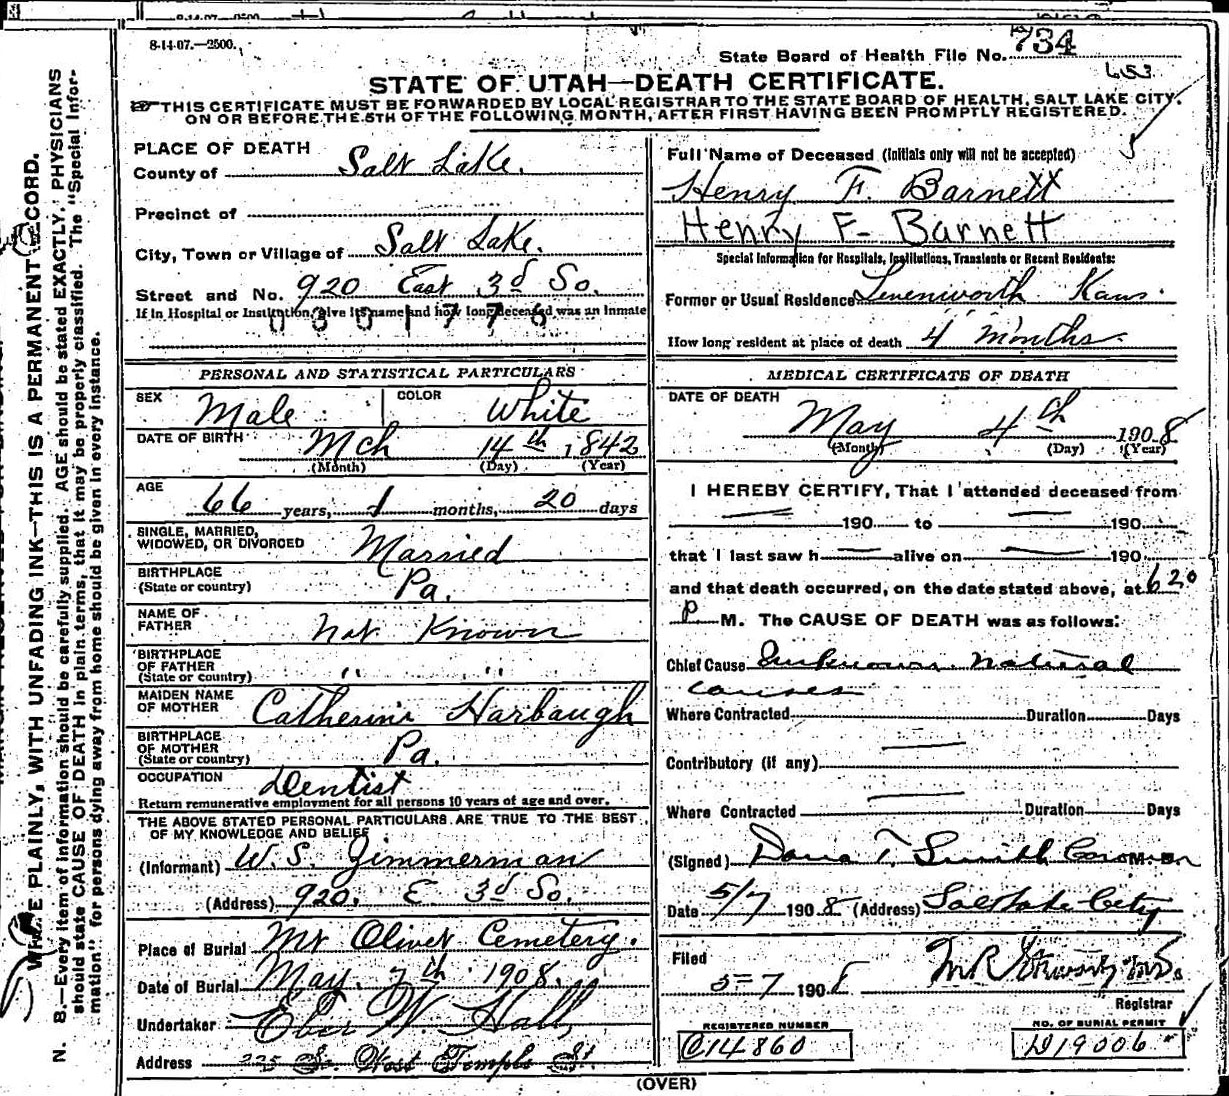 8-14-07.—2500.
State Board of Health File No. 734
653
STATE OF UTAH—DEATH CERTIFICATE.
THIS CERTIFICATE MUST BE FORWARDED BY LOCAL REGISTRAR TO THE STATE BOARD OF HEALTH, SALT LAKE CITY,
ON OR BEFORE THE 5TH OF THE FOLLOWING MONTH, AFTER FIRST HAVING BEEN PROMPTLY REGISTERED.
PLACE OF DEATH
County of Salt Lake.
Precinct of
City, Town or Village of Salt Lake.
Street and No. 920 East 3d So.
If in Hospital or Institution, give its name and how long deceased was an inmate
0301776
Full Name of Deceased (Initials only will not be accepted)
Henry F. Barnett
Henry F- Barnett
Special Information for Hospitals, Institutions, Transients or Recent Residents:
Former or Usual Residence Levenworth Kans.
How long resident at place of death 4 months
PERSONAL AND STATISTICAL PARTICULARS
SEX Male COLOR White
DATE OF BIRTH Mch 14th, 1842
(Month) (Day) (Year)
AGE
66 years, 1 months, 20 days
SINGLE, MARRIED,
WIDOWED, OR DIVORCED Married
BIRTHPLACE
(State or country) Pa.
NAME OF
FATHER Not Known
BIRTHPLACE
OF FATHER
(State or country) " "
MAIDEN NAME
OF MOTHER Catherine Harbaugh
BIRTHPLACE
OF MOTHER
(State or country) Pa.
OCCUPATION Dentist
Return remunerative employment for all persons 10 years of age and over.
THE ABOVE STATED PERSONAL PARTICULARS ARE TRUE TO THE BEST
OF MY KNOWLEDGE AND BELIEF
(Informant) W. S. Zimmerman
(Address) 920. E 3d So.
Place of Burial Mt Olivet Cemetery.
Date of Burial May 7th 1908.
Undertaker Eber W. Hall
Address 225 So. West Temple St.
MEDICAL CERTIFICATE OF DEATH
DATE OF DEATH
May 4th 1908
(Month) (Day) (Year)
I HEREBY CERTIFY, That I attended deceased from
190 to 190
that I last saw h alive on 190
and that death occurred, on the date stated above, at 6 20
P M. The CAUSE OF DEATH was as follows:
Chief Cause Unknown natural
causes
Where Contracted Duration Days
Contributory (if any)
Where Contracted Duration Days
(Signed) Dana T. Smith Coroner
Date 5/7 1908 (Address) Salt Lake City
Filed
5-7 1908
Registrar
REGISTERED NUMBER
C14860
NO. OF BURIAL PERMIT
D19006
(OVER)
N. B.—Every item of information should be carefully supplied. AGE should be stated EXACTLY. PHYSICIANS
should state CAUSE OF DEATH in plain terms, that it may be properly classified. The "Special Infor-
mation" for persons dying away from home should be given in every instance.
WRITE PLAINLY, WITH UNFADING INK—THIS IS A PERMANENT RECORD.